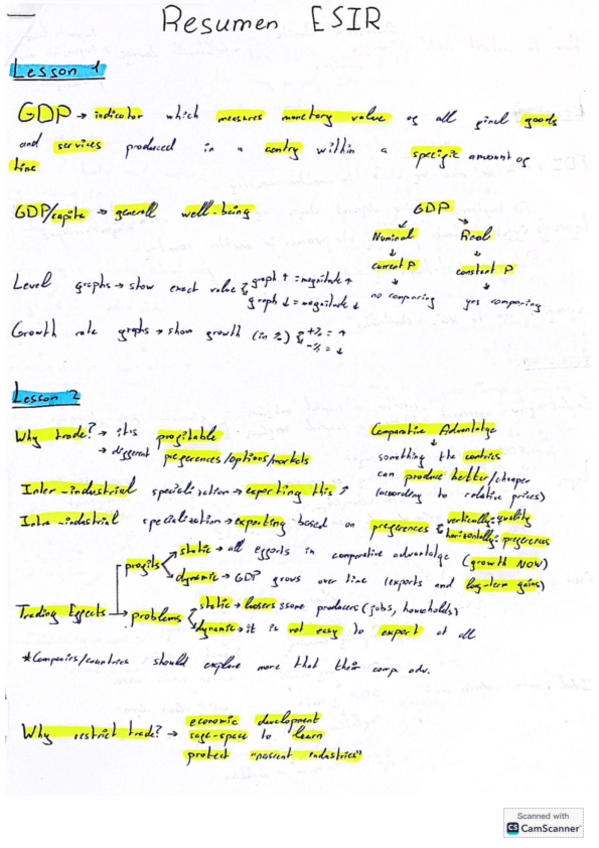 Resumen ESIR
Lesson 1
GDP → indicator which measures monetary value of all final goods
and services produced in a contry within a specific amount of
time
GDP/capita → generall well-being
GDP
Nominal Real
current P constant P
no comparing yes comparing
Level graphs → show exact value graph ↑ = magnitude ↑
graph ↓ = magnitude ↓
Growth rate graphs → show growth (in %) +% = ↑
-% = ↓
Lesson 2
Why trade? → it's profitable
→ different preferences/options/markets
Comparative Advantatge
↓
something the contries
can produce better/cheaper
(according to relative prices)
Inter-industrial specialization → exporting this
Intra-industrial specialization → exporting based on preferences vertically: quality
horizontally: preferences
Trading Effects
profits
static → all efforts in comparative advantatge (growth NOW)
dynamic → GDP grows over time (exports and long-term gains)
problems
static → loosers some producers (jobs, households)
dynamic → it is not easy to export at all
*Companies/countries should explore more that their comp adv.
Why restrict trade? → economic development
safe-space to learn
protect "nascent industries"
Scanned with
CS CamScanner